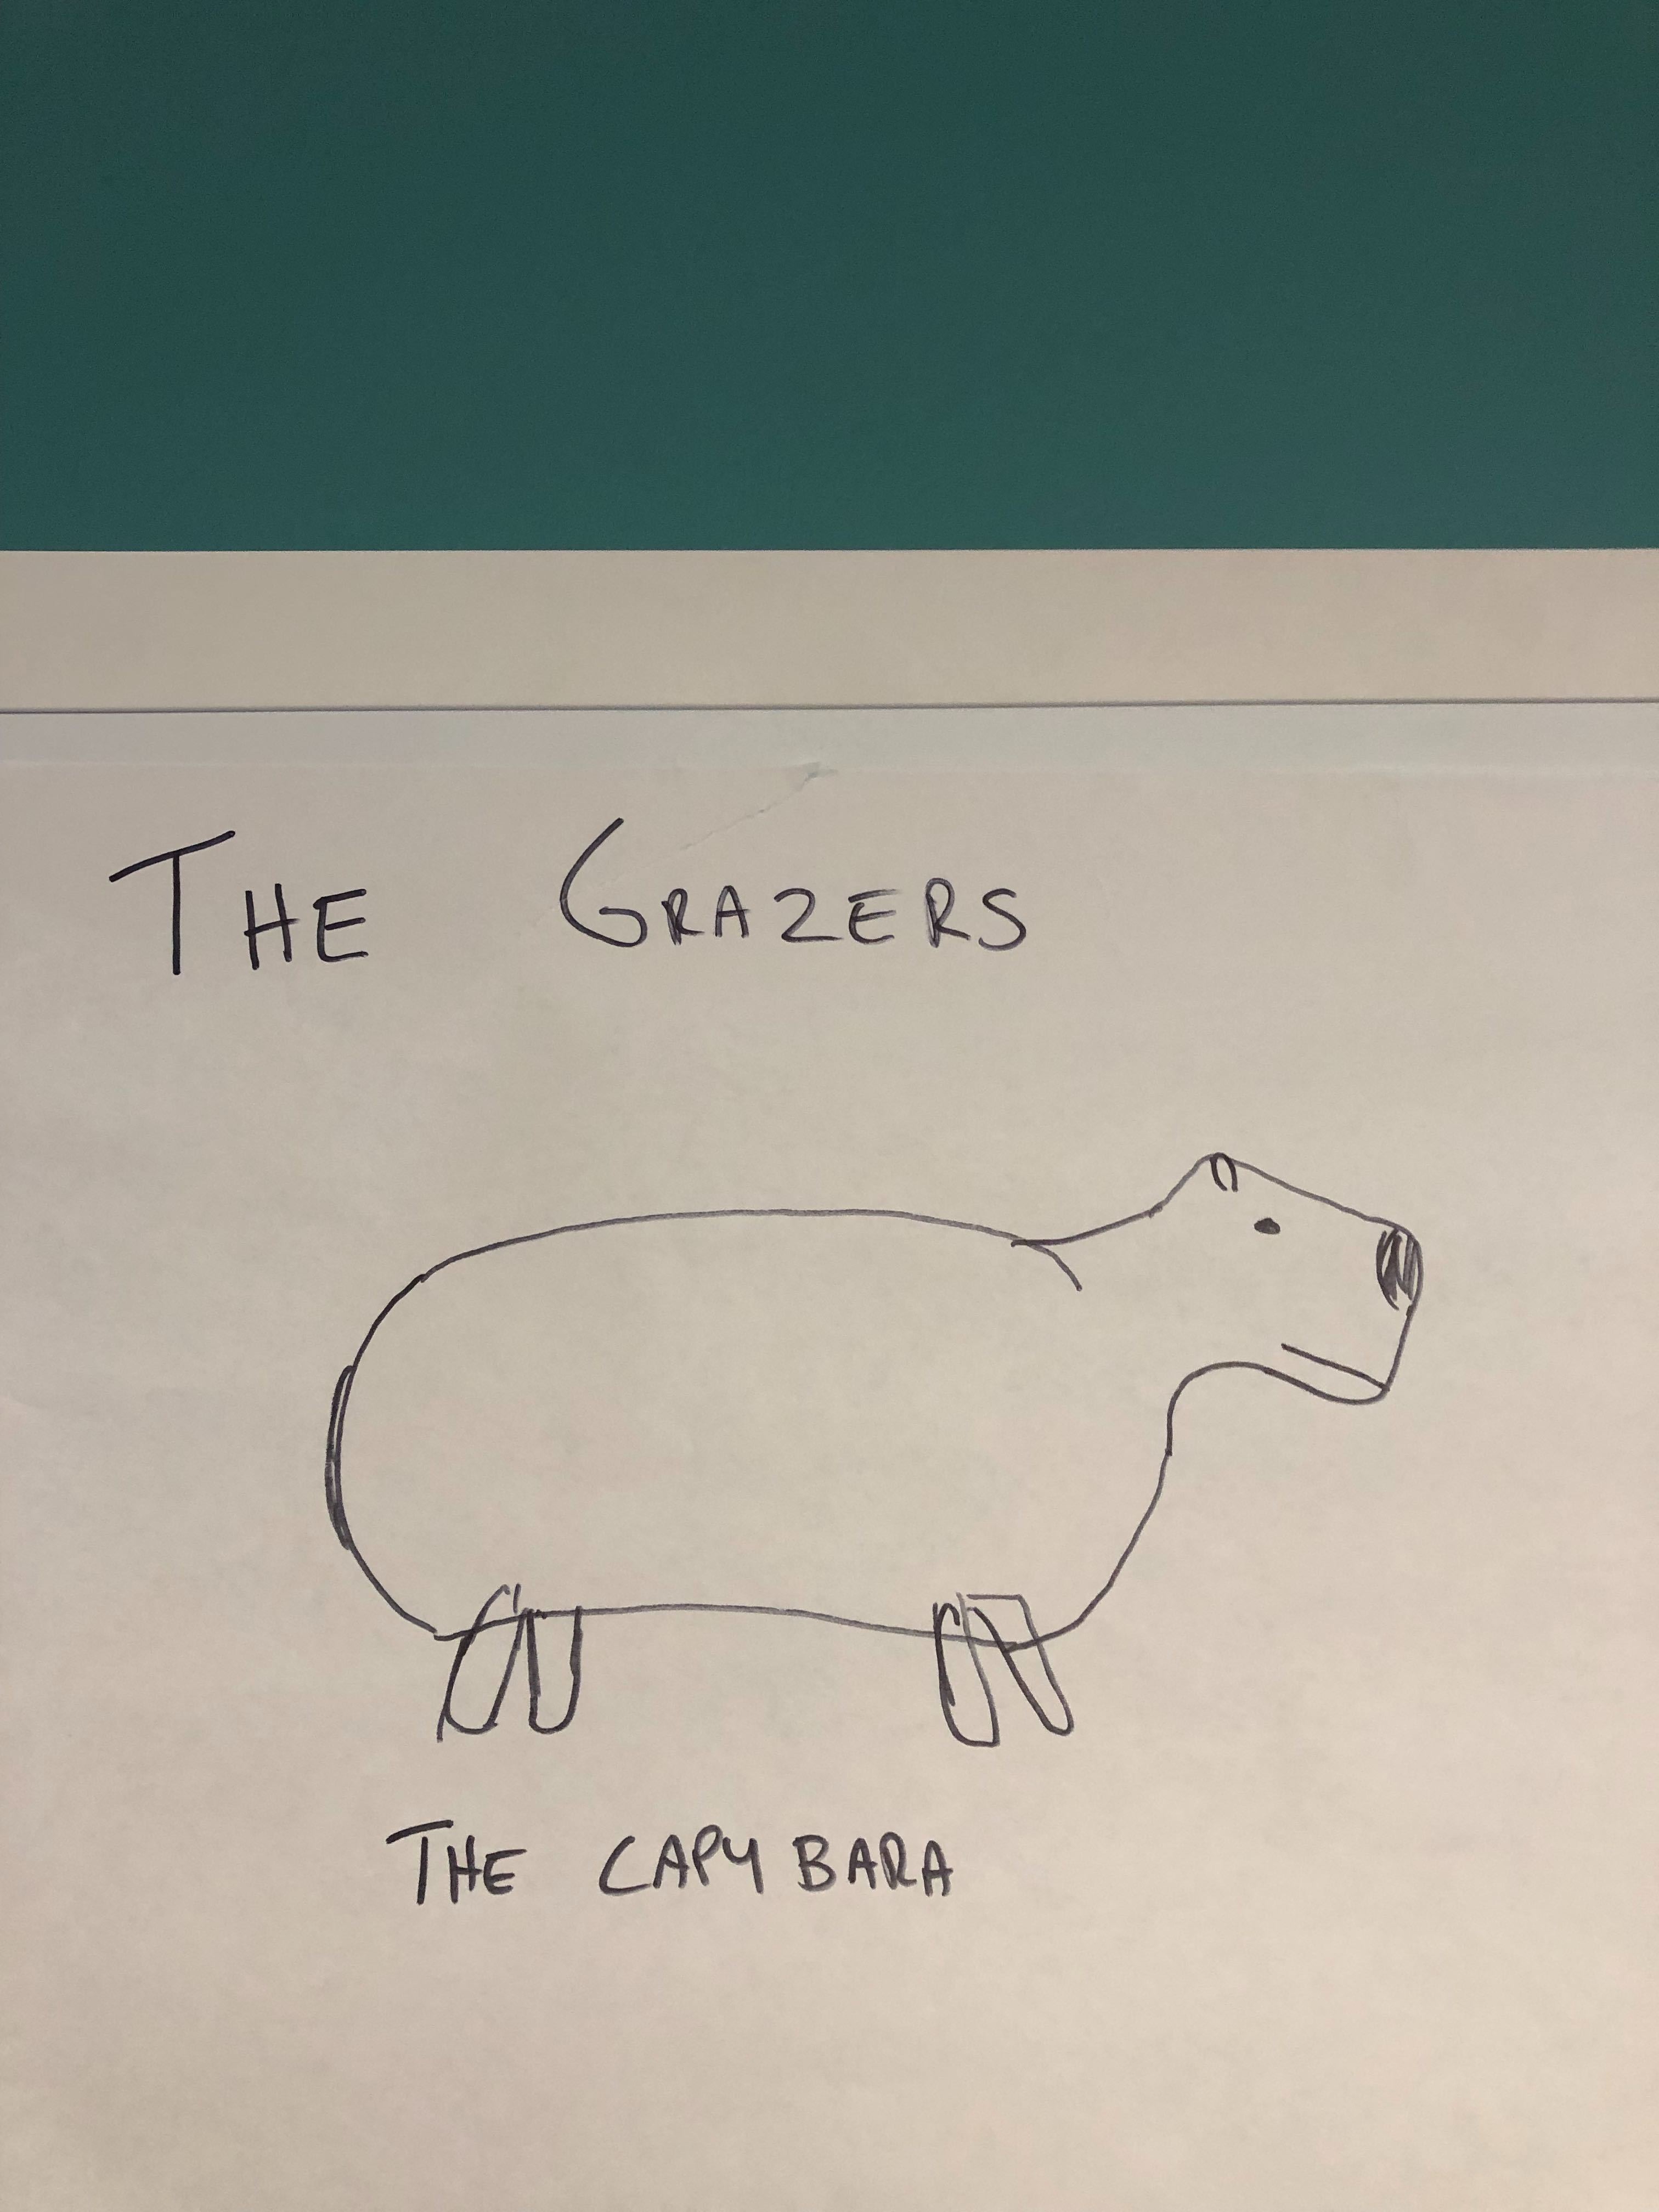 THE GRAZERS
THE CAPYBARA